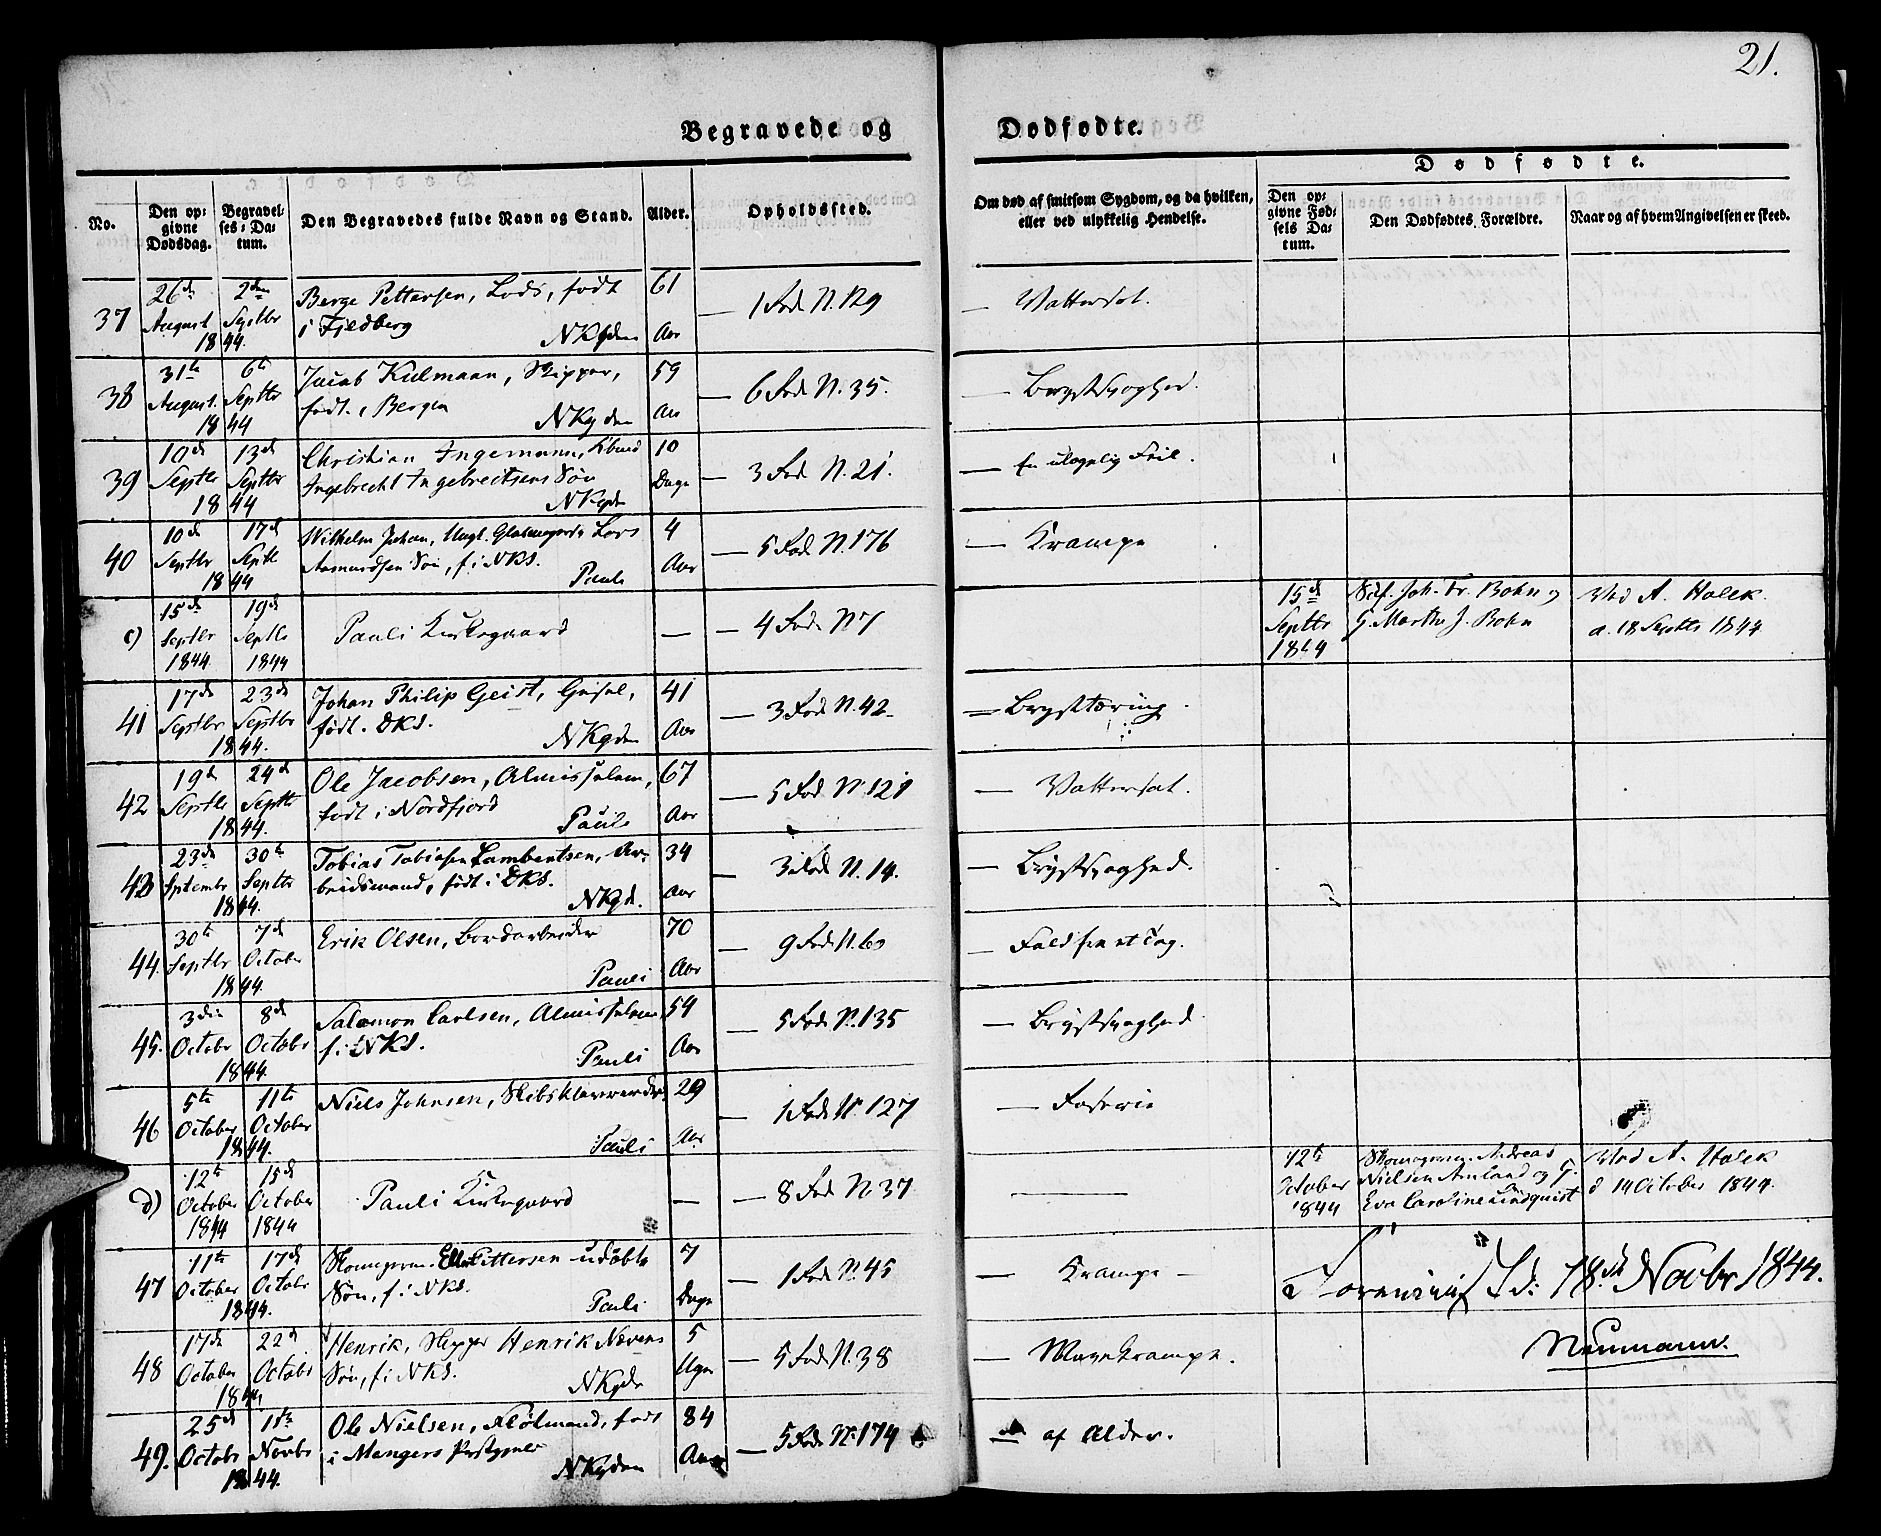 21.
Begravede og Dødfødte.
Dødfødte.
No.
Den opgivne Dødsdag.
Begravelses-Datum.
Den Begravedes fulde Navn og Stand.
Alder.
Opholdssted.
Om død af smitsom Sygdom, og da hvilken, eller ved ulykkelig Hendelse.
Den opgivne Fødsels Datum.
Den Dødfødtes Forældre.
Naar og af hvem Angivelsen er skeed.
37 26de 2den Berge Pettersen, Lods, født 61 — 1 Rode N. 129 — Vattersot.
August Septbr i Fjeldberg NKgden Aar
1844.
38 31te 6te Jacob Kulmann, Skipper, 59 — 6 Rode N. 35. — Brystsyghed.
August. Septbr født i Bergen NKgden Aar
1844
39 10de 13de Christian Ingemann, 10 — 3 Rode N. 21. — En ulægelig Feil.
Septbr Septbr Ingebrecht Ingebrectsens Søn Dage
1844 NKgde
40 10de 17de Wilhelm Johan, Lars 4 — 5 Rode N. 176 — Krampe
Septbr Septbr Asmundsen Søn, f. i NKS. Aar
1844 Pauli
c) 15de 19de Pauli Kirkegaard — — 4 Rode N 7 15de Joh. Fr. Bohn og Ved A. Holck.
Septbr Septbr Septbr G. Marthe J. Bohn d. 18 Septbr 1844
1844. 1844 1844
41 17de 23de Johan Philip Geist, 41 — 3 Rode N. 42 — Brysttæring.
Septbr Septbr født i DKS. NKgden Aar
1844.
42 19de 24de Ole Jacobsen, Almisselem, 67 — 5 Rode N. 121 — Vattersot.
Septbr Septbr født i Nordfjord Pauli Aar
1844.
43 23de 30te Tobias Tobiasen Lambertsen, Ar- 34 — 3 Rode N. 14. — Brystsyghed.
Septembr Septbr beidsmand, født i DKS. NKgd. Aar
1844.
44. 30te 7de Erik Olsen, Bordarbeider 70 — 9 Rode N. 60 — Fald fra et Tag.
Septbr October Pauli Aar
1844.
45. 3die 8de Salomon Carlsen, Almisselem, 54 — 5 Rode N. 135 — Brystsyghed
Octobr Octobr f. i NKS. Pauli Aar
1844.
46 5te 11te Niels Johnsen, 29 — 1 Rode N. 127 —
October October Pauli Aar
1844.
d) 12te 15de Pauli Kirkegaard — — 8 Rode N 37 — 12te Skomagersv. Andreas Ved A. Holck
October October October Nielsen Amland og G. d 14 October 1844.
1844 1844 1844 Eva Caroline Lindquist
47 11te 17de Skomagersv. Pettersen udøbte 7 — 1 Rode N. 45 — Krampe —
October Octobr Søn, f. i NKS. Pauli Dage
1844.
Foreviist d: 18de Novbr 1844.
Neumann.
48 17de 22de Henrik, Skipper Henrik Nævens 5 — 5 Rode N. 38 — Mavekrampe.
October Octobr Søn, f. i NKS. NKgde Uger
1844.
49. 25de 1ste Ole Nielsen, født 84 — 5 Rode N. 174 — af Alder.
Octobr Novbr i Mangers Præstegjeld NKgden Aar
1844.